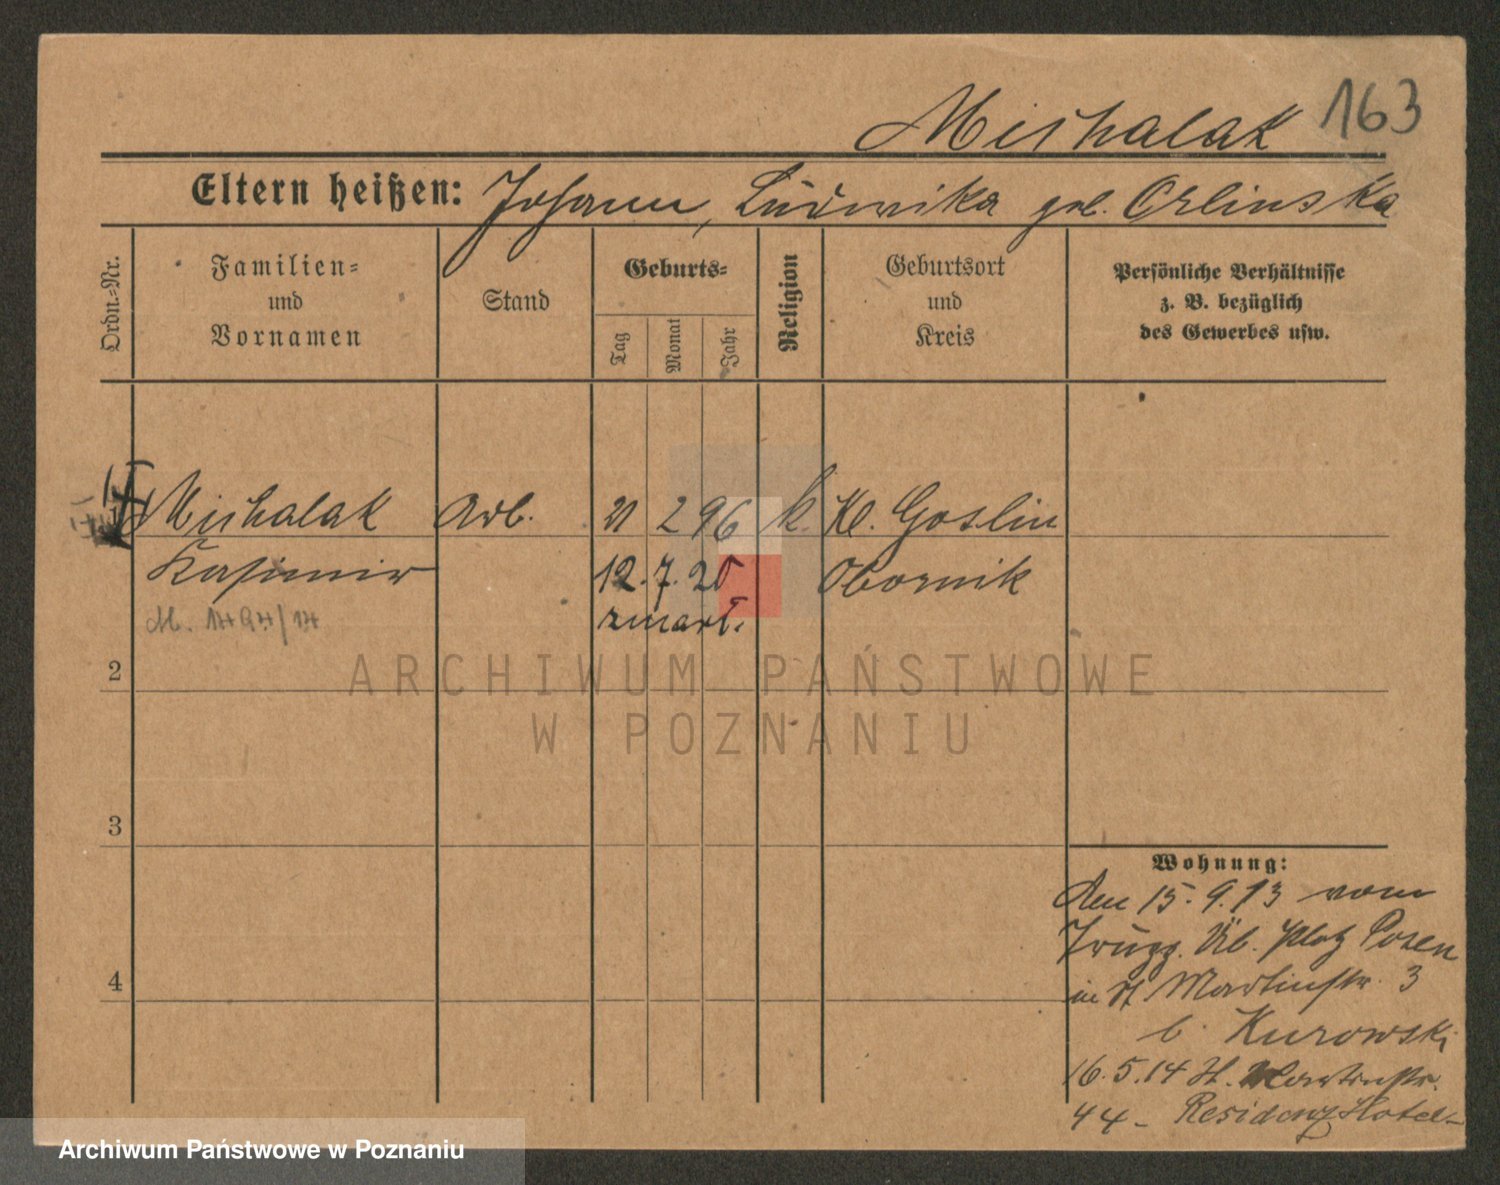 Mischalak 163
Eltern heißen: Johann, Ludwika geb. Orlinska
Ordn.-Nr.
Familien-
und
Vornamen
Stand
Geburts-
Tag
Monat
Jahr
Religion
Geburtsort
und
Kreis
Persönliche Verhältnisse
z. B. bezüglich
des Gewerbes usw.
1 Mischalak Arb. 21 2 96 k. Kl. Goslin
Kasimir 12. 7. 20 Obornik
zmarł.
2
3
4
ARCHIWUM PAŃSTWOWE
W POZNANIU
Wohnung:
den 15. 9. 13 vom
Trupp. Üb. Platz Posen
in St Martinstr. 3
b. Kurowski
16. 5. 14 St. Martinstr.
44 - Residenz Hotel -
Archiwum Państwowe w Poznaniu